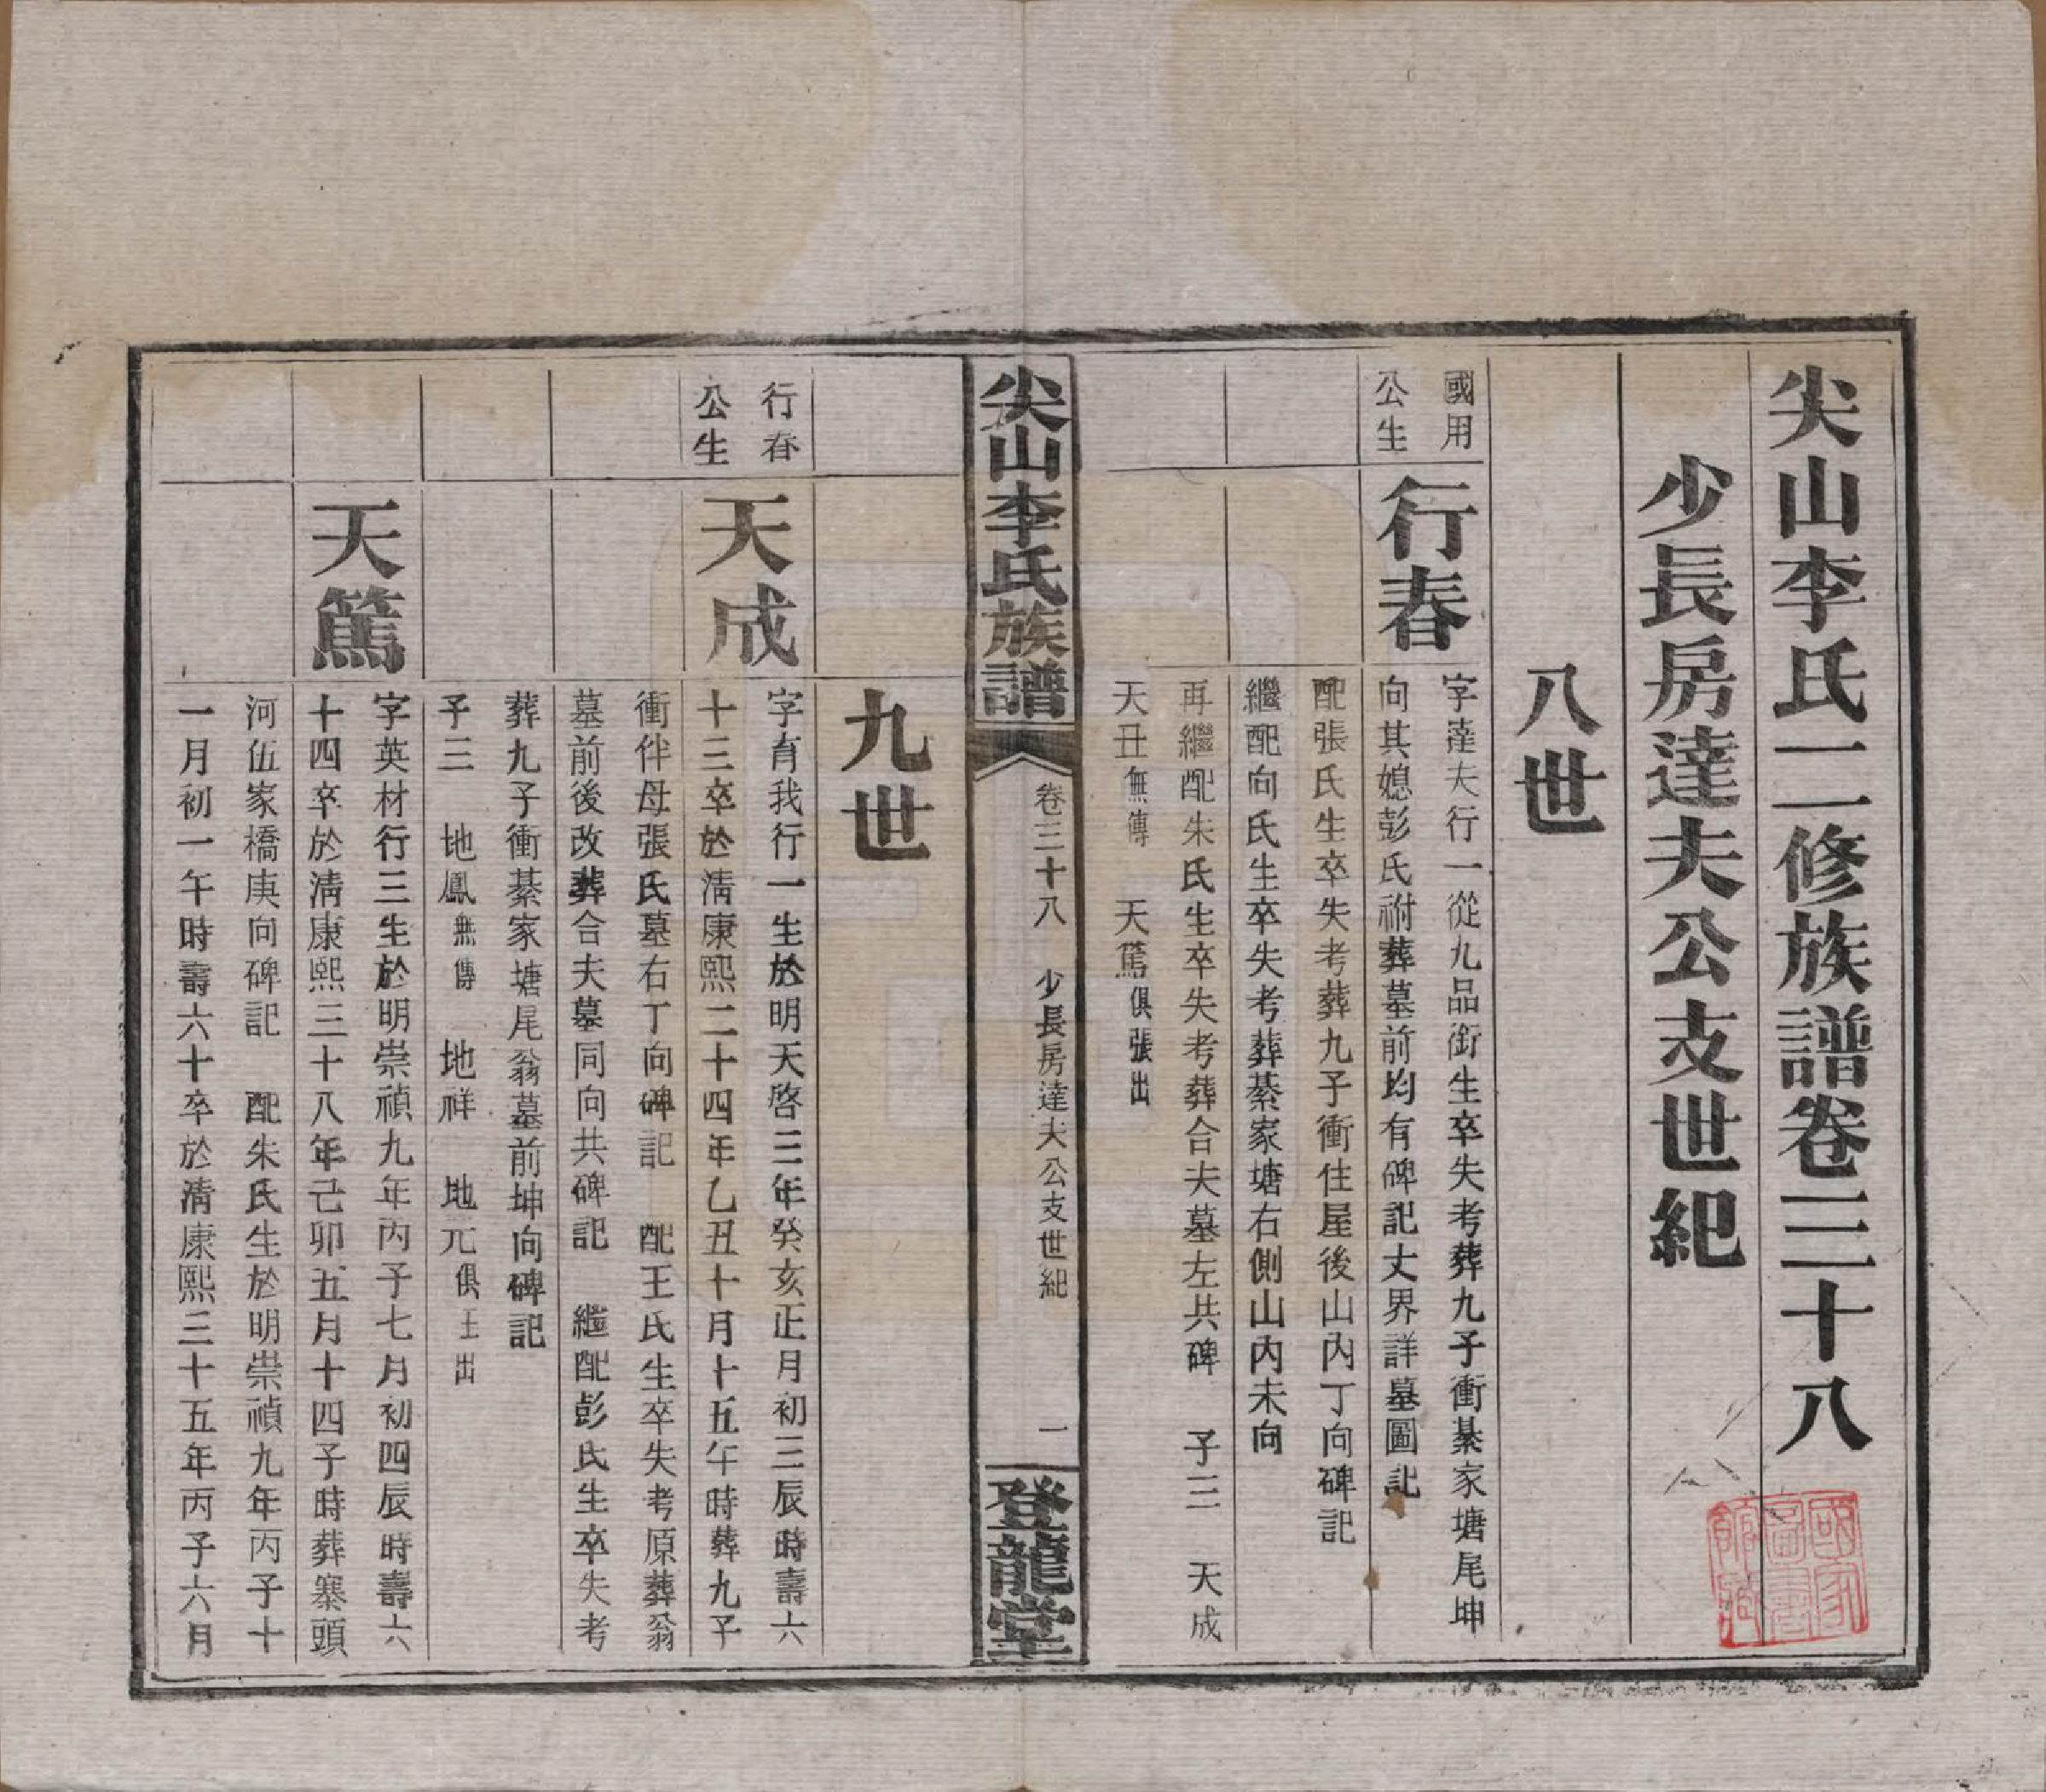 尖山李氏二修族譜卷三十八
少長房達夫公支世紀
八世
國用
公生
行春
字達夫行一從九品銜生卒失考葬九子衝綦家塘尾坤
向其媳彭氏祔葬墓前均有碑記丈界詳墓圖記
配張氏生卒失考葬九子衝住屋後山內丁向碑記
繼配向氏生卒失考葬綦家塘右側山內未向
再繼配朱氏生卒失考葬合夫墓左共碑　子三　天成
天丑無傳　天篤俱張出
尖山李氏族譜
卷三十八　少長房達夫公支世紀
一
登龍堂
九世
行春
公生
天成
字育我行一生於明天啓三年癸亥正月初三辰時壽六
十三卒於清康熙二十四年乙丑十月十五午時葬九子
衝伴母張氏墓右丁向碑記　配王氏生卒失考原葬翁
墓前後改葬合夫墓同向共碑記　繼配彭氏生卒失考
葬九子衝綦家塘尾翁墓前坤向碑記
子三　地鳳無傳　地祥　地元俱王出
天篤
字英材行三生於明崇禎九年丙子七月初四辰時壽六
十四卒於清康熙三十八年己卯五月十四子時葬寨頭
河伍家橋庚向碑記　配朱氏生於明崇禎九年丙子十
一月初一午時壽六十卒於清康熙三十五年丙子六月
國家
圖書
館藏